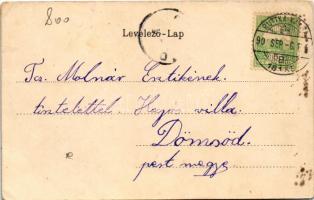 800
Levelező-Lap
Tcs. Molnár Esztikének
tisztelettel. Hajós villa.
Dömsöd
pest megye